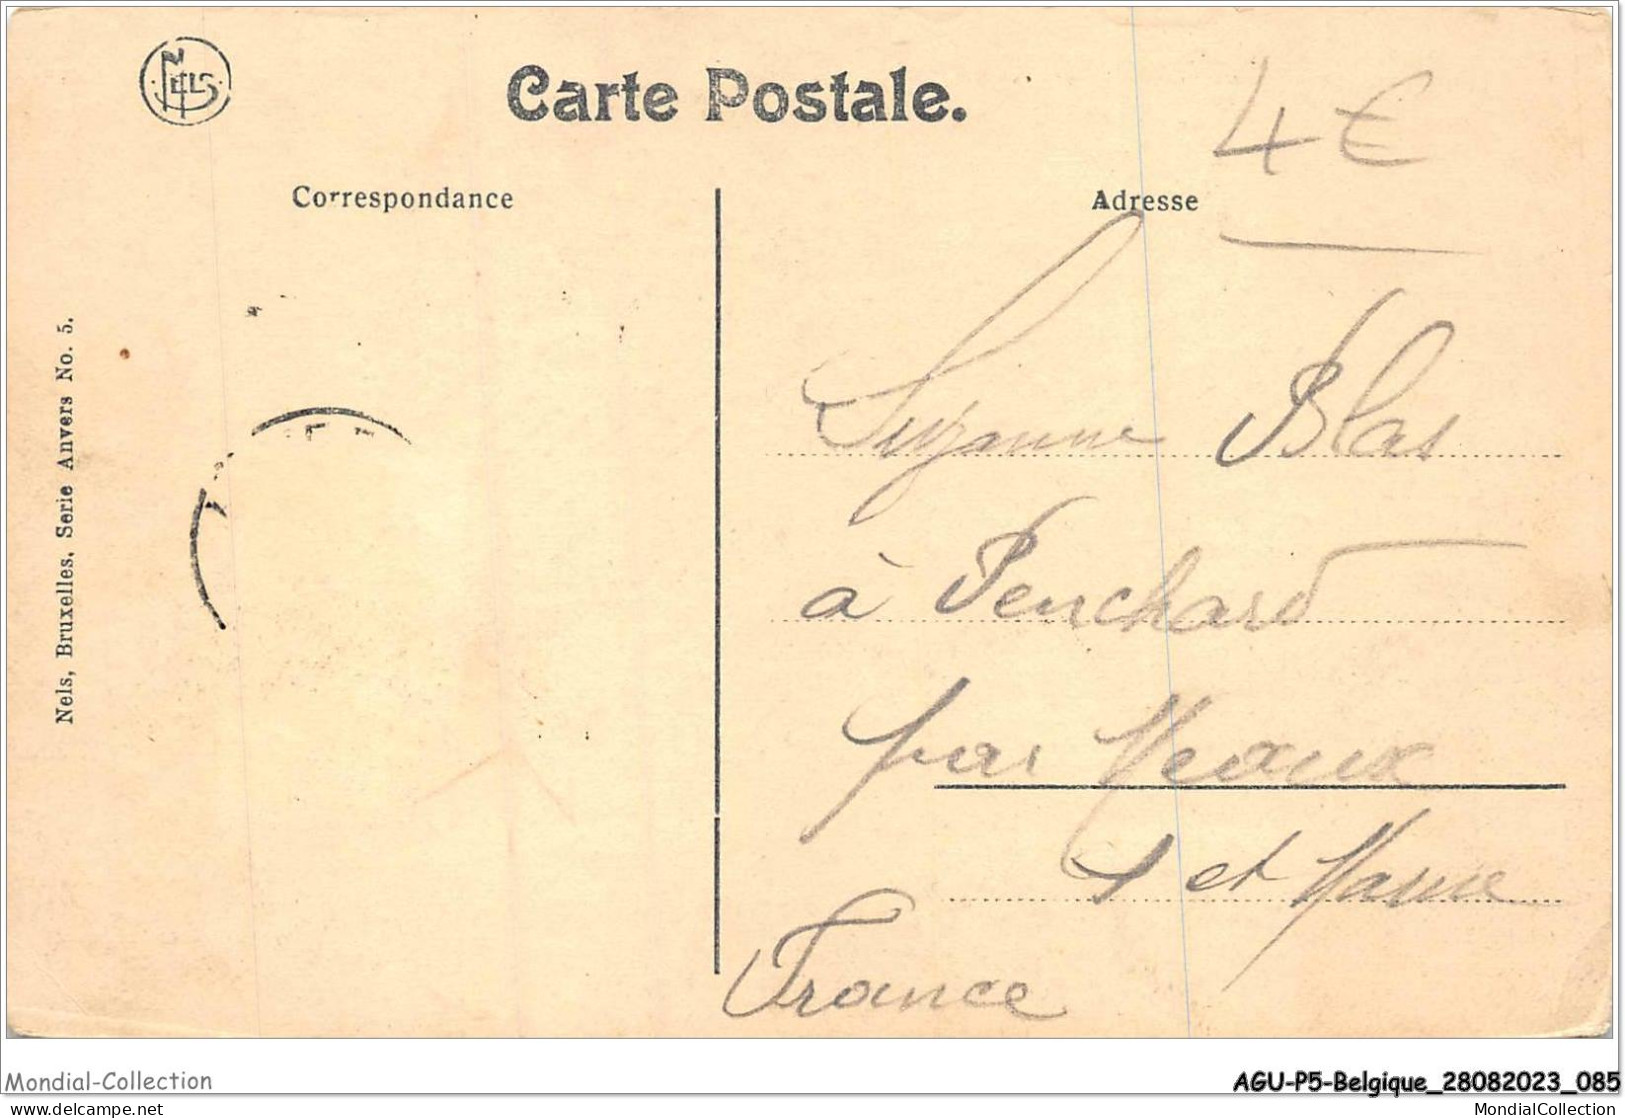 NELS
Carte Postale.
4 €
Correspondance
Adresse
Nels, Bruxelles, Serie Anvers No. 5.
Suzanne Blas
à Penchard
par Meaux
S et Marne
France
Mondial-Collection
AGU-P5-Belgique_28082023_085
www.delcampe.net
MondialCollection